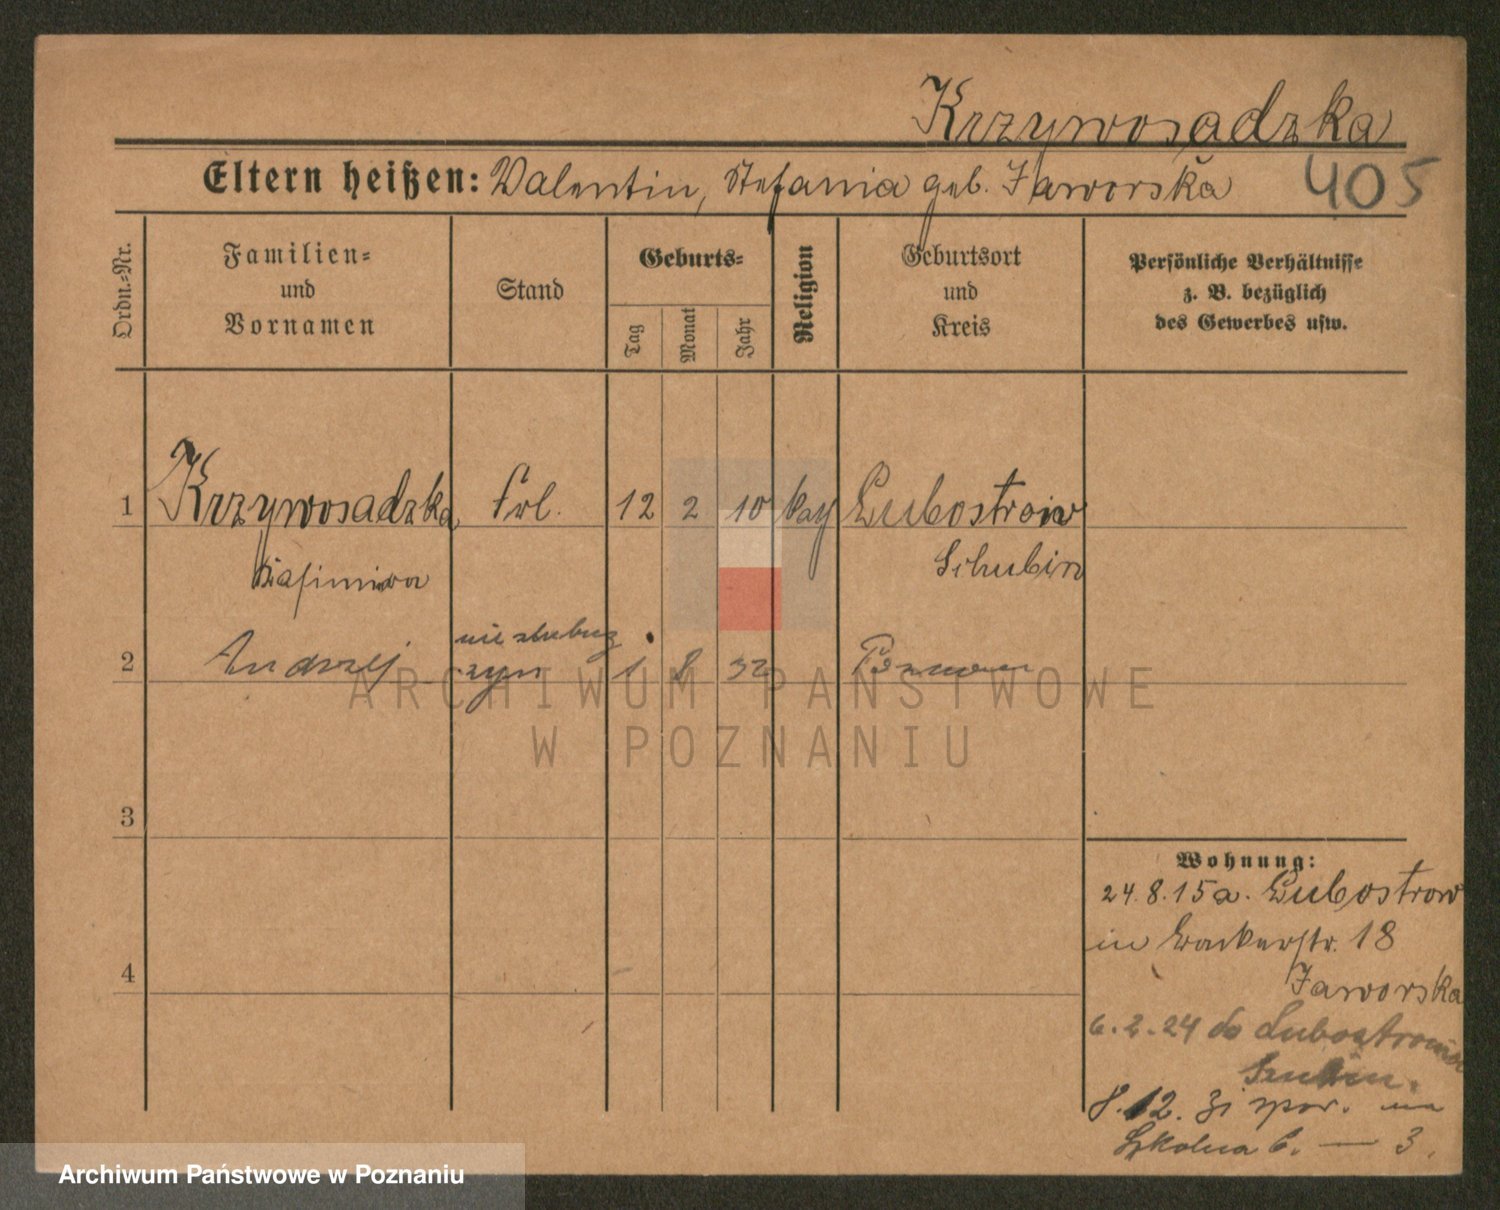 Krzywosadzka
Eltern heißen: Valentin, Stefania geb. Jaworska 405
Ordn.-Nr.
Familien-
und
Vornamen
Stand
Geburts-
Tag
Monat
Jahr
Religion
Geburtsort
und
Kreis
Persönliche Verhältnisse
z. B. bezüglich
des Gewerbes usw.
1 Krzywosadzka Frl. 12 2 10 kath Lubostroń
Kasimira Schubin
nieślubny
2 Andrzej syn 1 8 32 Poznań
3
4
Wohnung:
24. 8. 15 a. Lubostron
in 18
Jaworska
6. 2. 24 do Lubostronia
Szubin.
8. 12. 31 spow. na
Szkolna 6. — 3.
ARCHIWUM PAŃSTWOWE
W POZNANIU
Archiwum Państwowe w Poznaniu